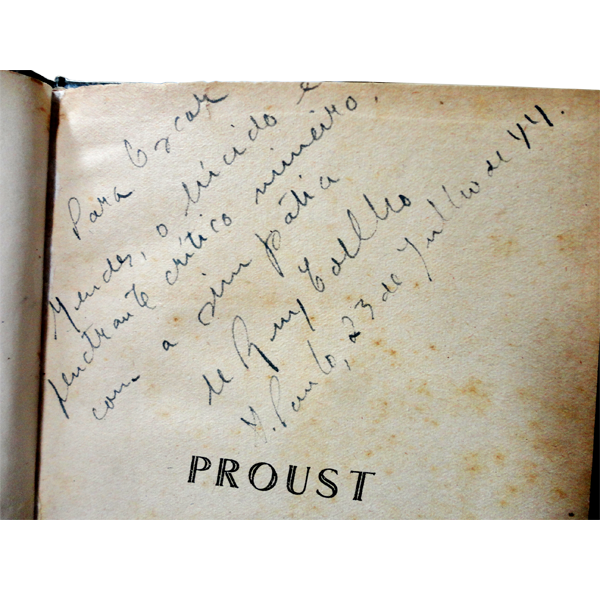 Para Oscar
Mendes, o lúcido e
penetrante crítico mineiro,
com a simpátia
de Ruy Coelho
S. Paulo, 23 de Julho de 44.
PROUST